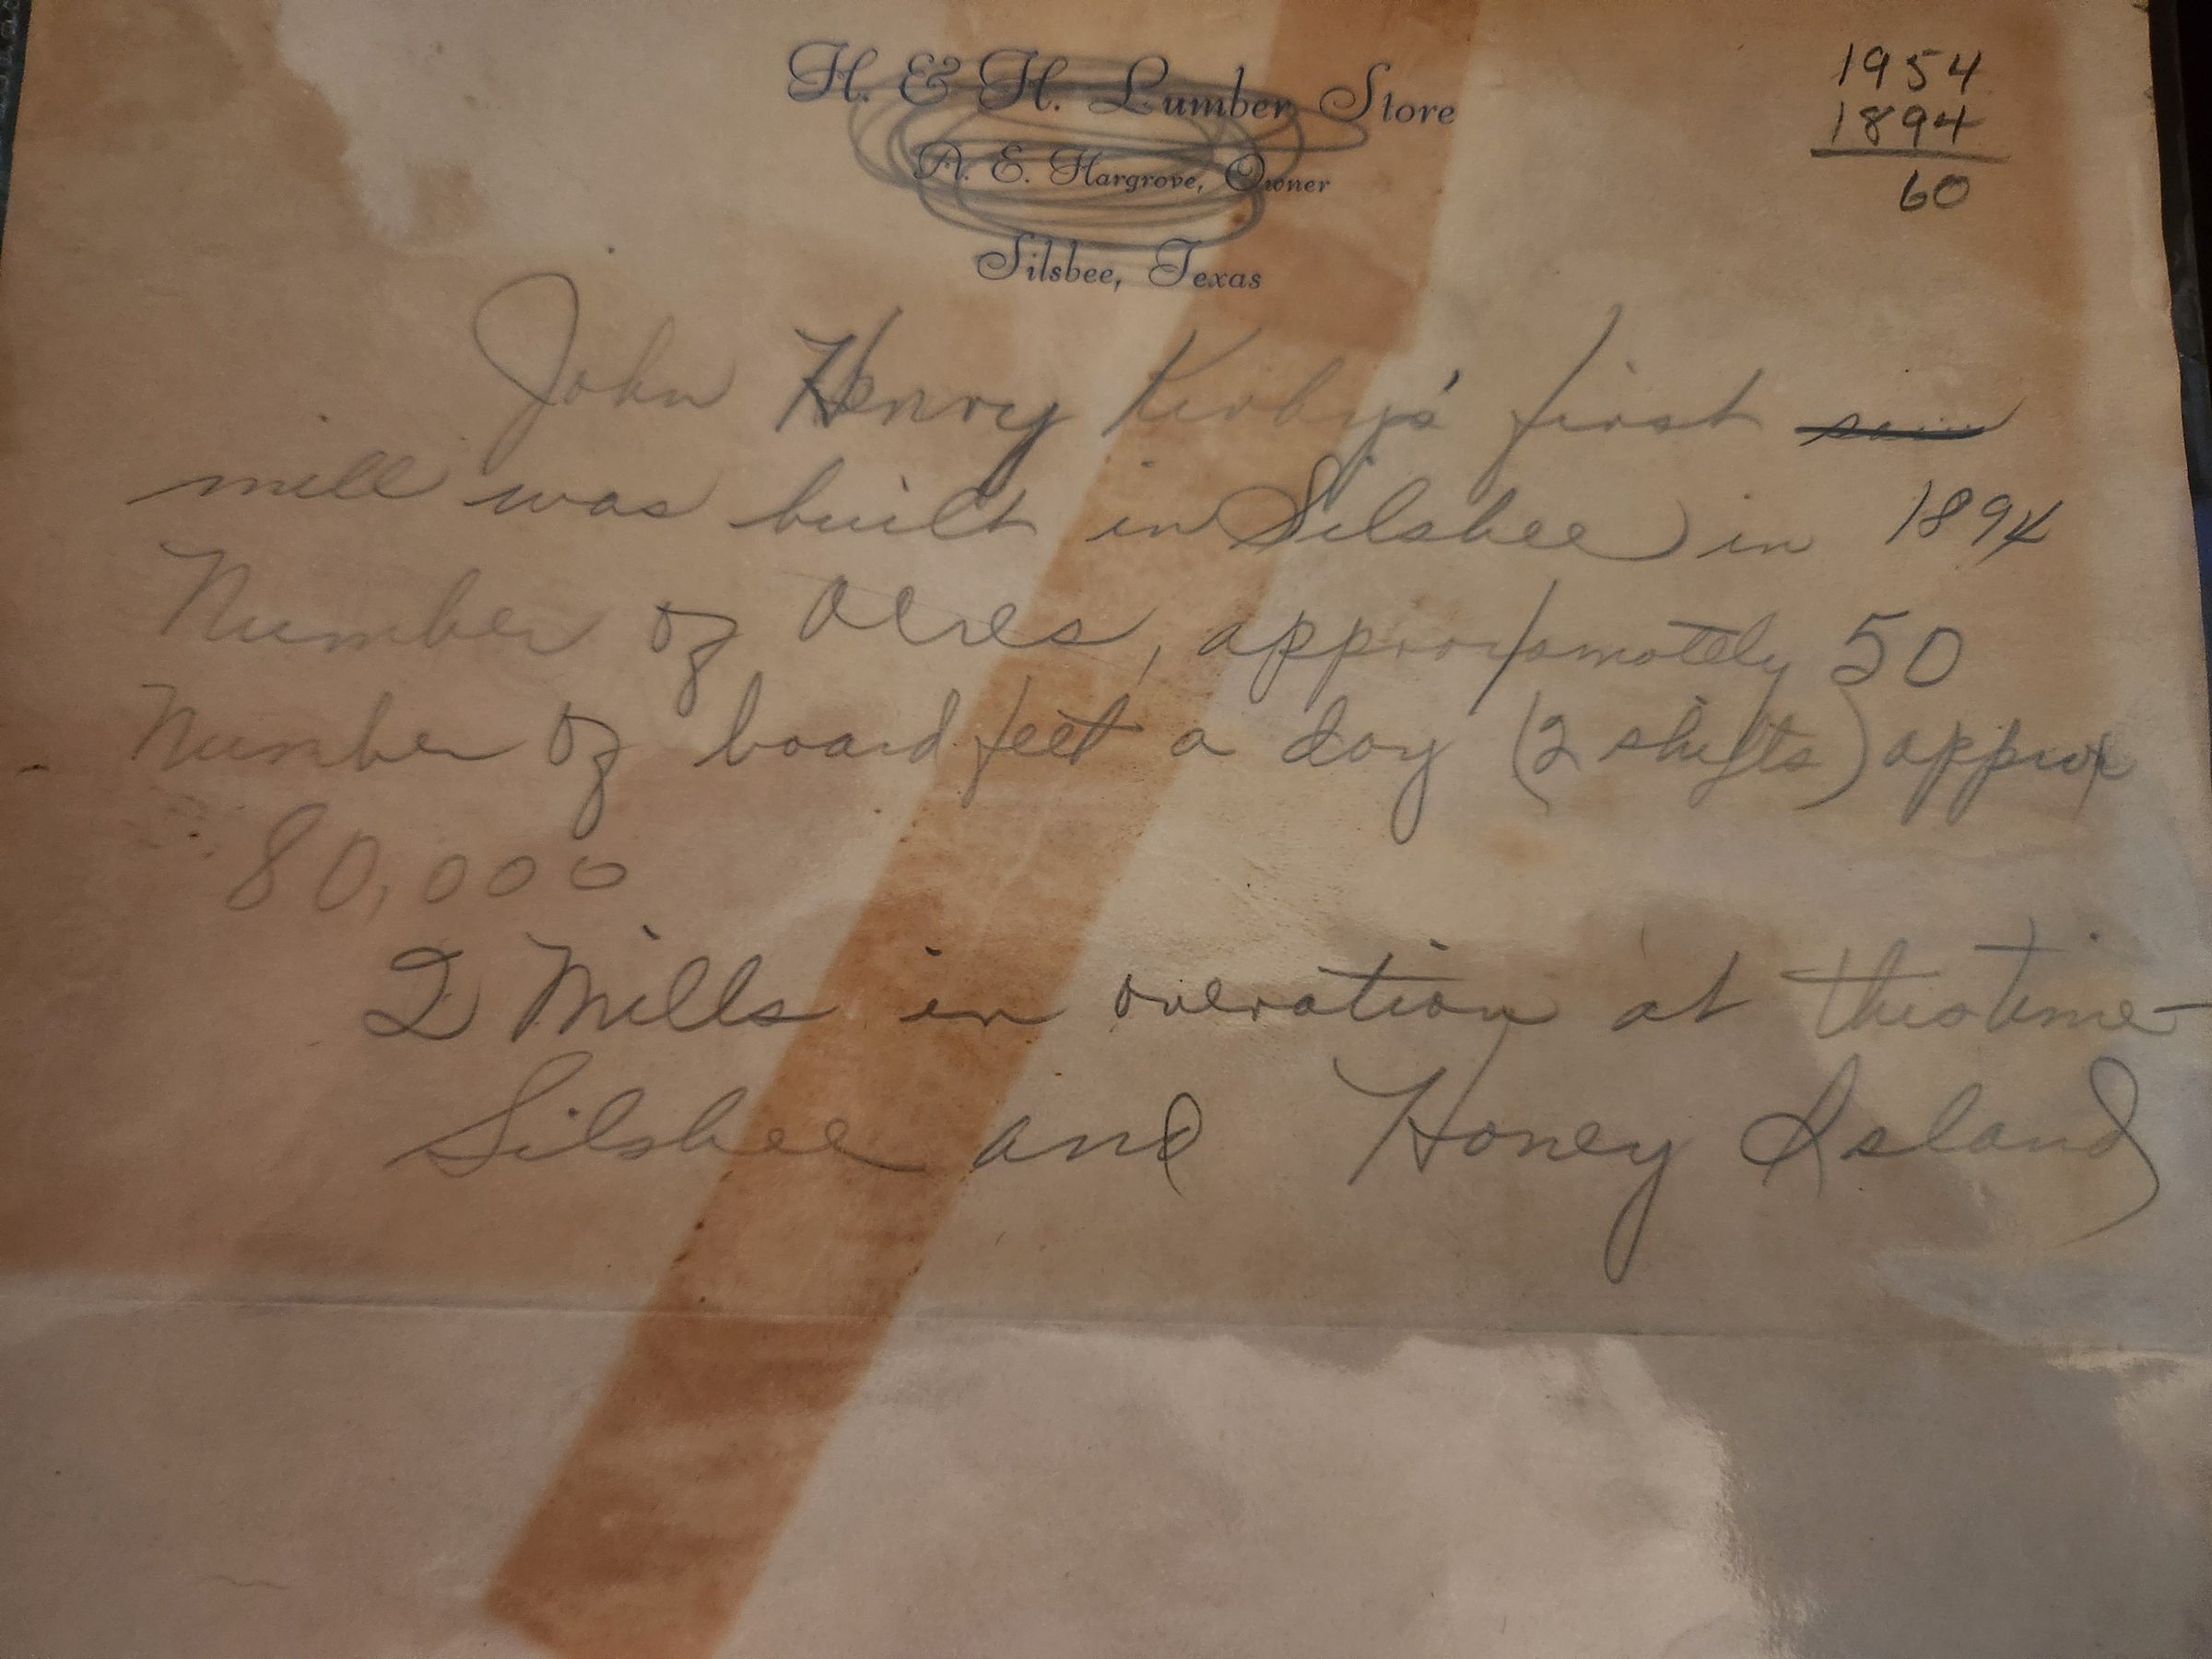 H. & H. Lumber Store
A. E. Hargrove, Owner
Silsbee, Texas
1954
1894
60
John Henry Kirby's first saw
mill was built in Silsbee in 1894
Number of Acres, approximately 50
Number of board feet a day (2 shifts) approx
80,000
2 Mills in operation at this time -
Silsbee and Honey Island